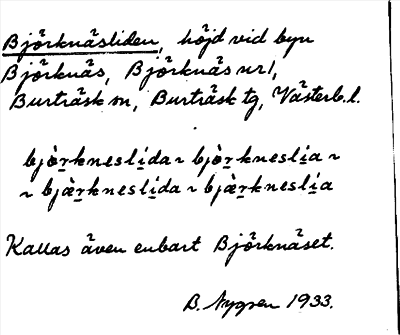 Björknäsliden, höjd vid byn
Björknäs, Björknäs nr 1,
Burträsk sn, Burträsk tg, Västerb. l.
bjö̀r̥knesli̱da ~ bjö̀r̥knesli̱a ~
~ bjæ̀r̥knesli̱da ~ bjæ̀r̥knesli̱a
Kallas även enbart Björknäset.
B. Nygren 1933.